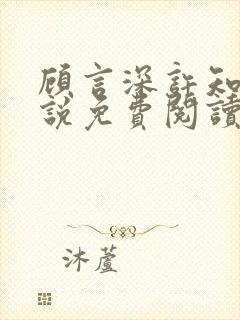 顾言深許知
說免費閱讀
沐蘆